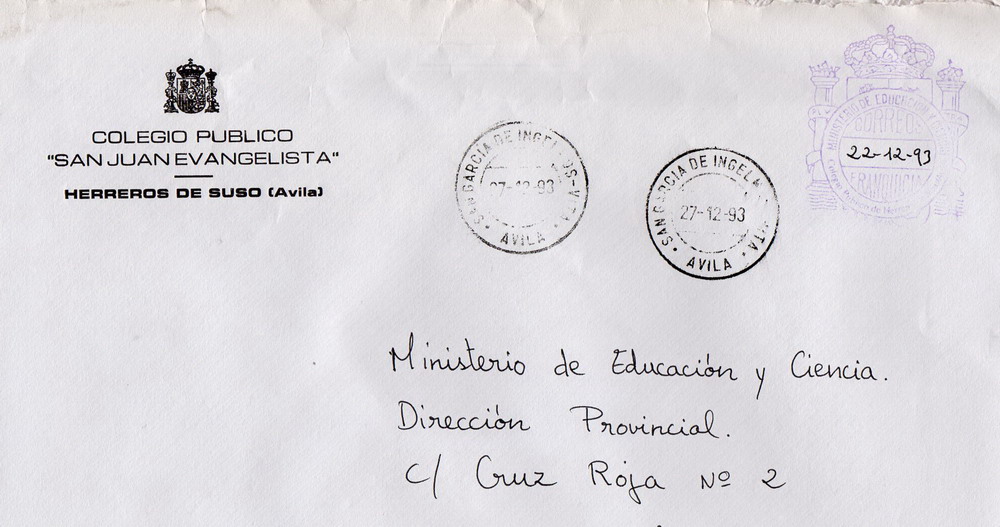 COLEGIO PUBLICO
"SAN JUAN EVANGELISTA"
HERREROS DE SUSO (Avila)
SAN GARCIA DE INGELOS-VITA
27-12-93
AVILA
SAN GARCIA DE INGEL VITA
27-12-93
AVILA
MINISTERIO DE EDUCACION
CORREO
22-12-93
FRANQUICIA
Colegio Público de
Ministerio de Educación y Ciencia.
Dirección Provincial.
C/ Cruz Roja Nº 2